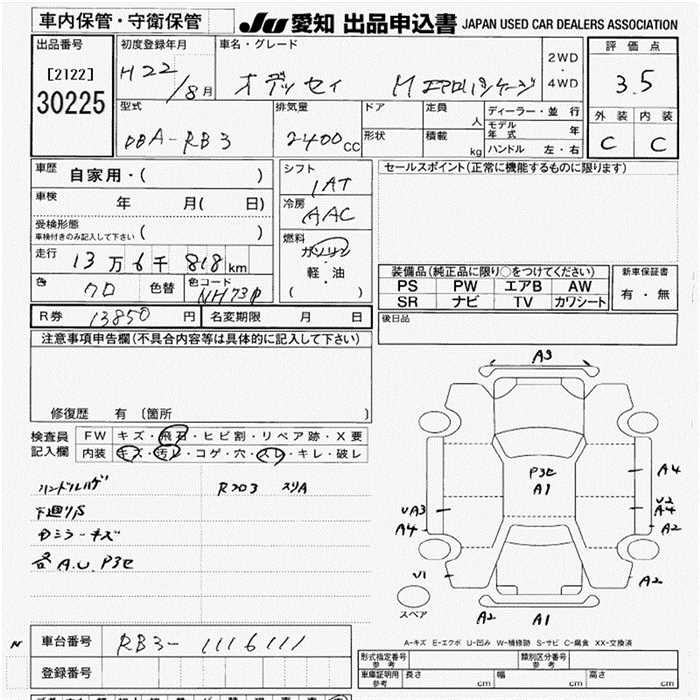 車内保管・守衛保管
JU 愛知 出品申込書 JAPAN USED CAR DEALERS ASSOCIATION
出品番号
[2122]
30225
初度登録年月
H22/8月
車名・グレード
オデッセイ Mエアロパッケージ
2WD
・
4WD
評価点
3.5
外装 内装
C C
型式
DBA-RB3
排気量
2400cc
ドア
形状
定員 人
積載 kg
ディーラー・並行
モデル年式 年
ハンドル 左・右
車歴
自家用・( )
車検 年 月( 日)
受検形態
車検付きのみ記入して下さい ( )
走行 13万6千818km
色 クロ 色替 色コード NH731P
シフト
IAT
冷房
AAC
燃料
ガソリン
・
軽・油
( )
セールスポイント(正常に機能するものに限ります)
装備品(純正品に限り○をつけてください)
PS PW エアB AW
SR ナビ TV カワシート
新車保証書
有・無
R券 13850円 名変期限 月 日
後日品
注意事項申告欄(不具合内容等は具体的に記入して下さい)
修復歴 有 〔箇所 〕
検査員記入欄
FW キズ・飛石・ヒビ割・リペア跡・X要
内装 キズ・汚レ・コゲ・穴・スレ・キレ・破レ
ハンドルハゲ Rフロア スリA
下廻りS
Dミラーキズ
各A.U.P3セ
A3
P3セ
A1
A4
U2
A4
A2
UA3
A4
U1
A2
スペア
A2 A1
A-キズ E-エクボ U-凹み W-補修跡 S-サビ C-腐食 XX-交換済
車台番号 RB3-1116111
登録番号
型式指定番号 参考
類別区分番号 参考
車庫証明用 参考 長さ cm 幅 cm 高さ cm